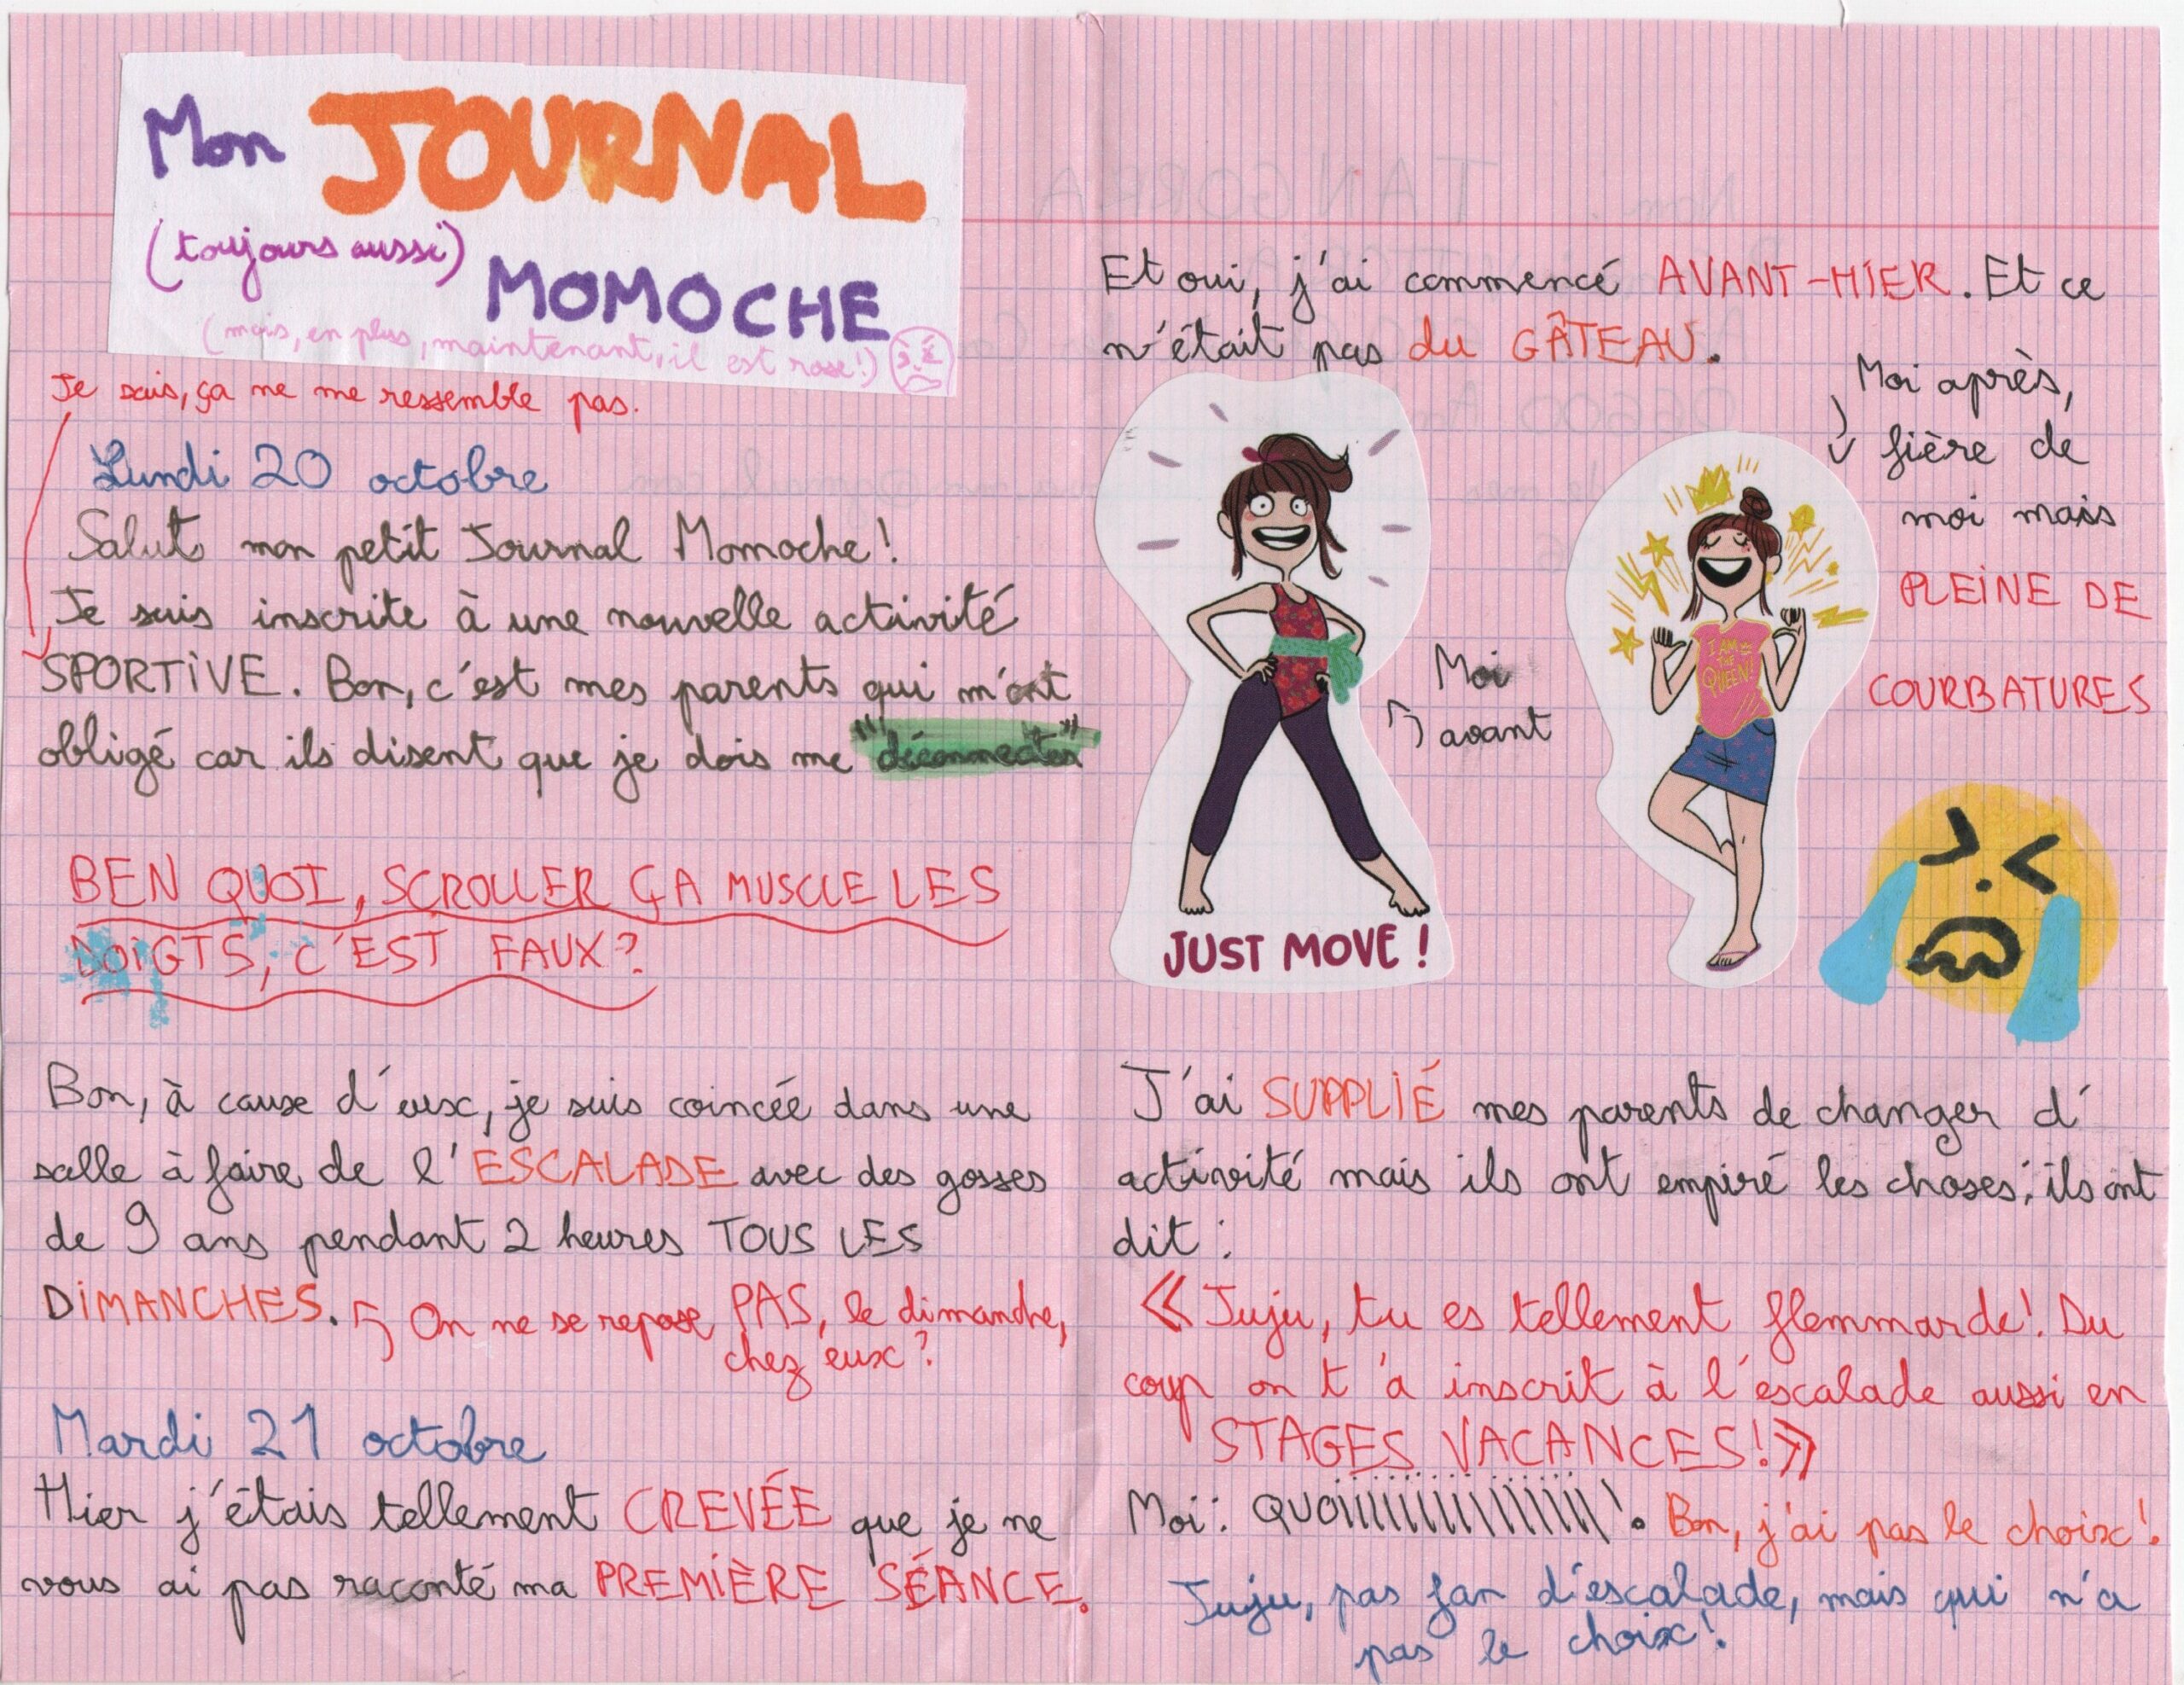 Mon JOURNAL
(toujours aussi) MOMOCHE
(mais, en plus, maintenant, il est rose!)
Je sais, ça ne me ressemble pas.
Lundi 20 octobre
Salut mon petit Journal Momoche!
Je suis inscrite à une nouvelle activité
SPORTIVE. Bon, c'est mes parents qui m'ont
obligé car ils disent que je dois me "déconnecter"
BEN QUOI, SCROLLER ÇA MUSCLE LES
DOIGTS, C'EST FAUX?
Bon, à cause d'eux, je suis coincée dans une
salle à faire de l'ESCALADE avec des gosses
de 9 ans pendant 2 heures TOUS LES
DIMANCHES. On ne se repose PAS, le dimanche,
chez eux?
Mardi 21 octobre
Hier j'étais tellement CREVÉE que je ne
vous ai pas raconté ma PREMIÈRE SÉANCE.
Et oui, j'ai commencé AVANT-HIER. Et ce
n'était pas du GÂTEAU.
Moi après,
fière de
moi mais
PLEINE DE
COURBATURES
Moi
avant
I AM
THE
QUEEN!
JUST MOVE !
J'ai SUPPLIÉ mes parents de changer d'
activité mais ils ont empiré les choses; ils ont
dit :
« Juju, tu es tellement flemmarde! Du
coup on t'a inscrit à l'escalade aussi en
STAGES VACANCES! »
Moi: QUOiiiiiiiiiiiiiiii! Bon, j'ai pas le choix!
Juju, pas fan d'escalade, mais qui n'a
pas le choix!